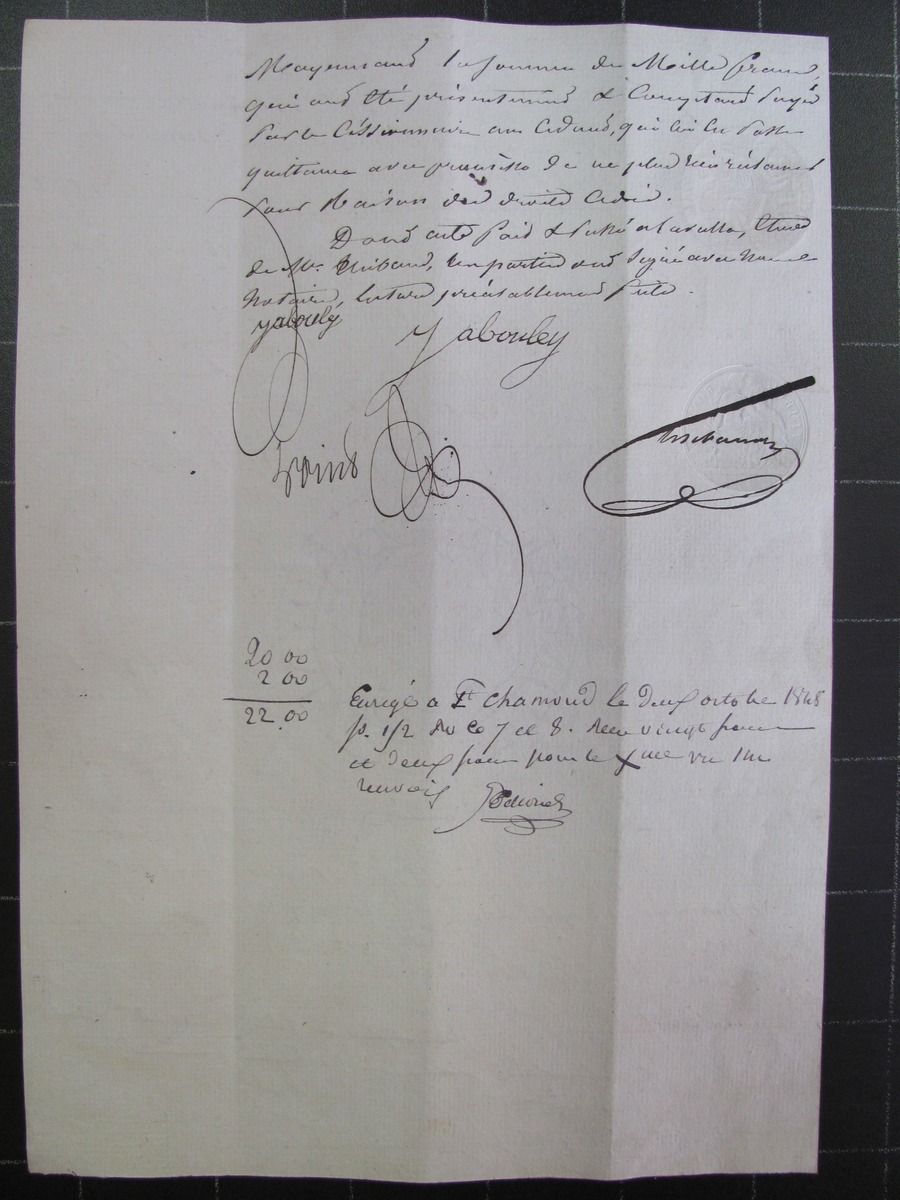 Moyennant la somme de Mille francs,
qui ont été présentement & Comptant payé
par le Cessionnaire au Cédant, qui lui en passe
quittance avec promesse de ne plus rien réclamer
pour Raison des droits Cédés.
Dont acte fait & passé à Lavalla, Etude
de Me. Thibaud, les parties ont Signé avec Nous
Notaire, lecture préalablement faite.
Yabouley
Yabouley
Thibaud
20 00
2 00
22.00
Enregé a St chamond le deux octobre 1848
fo. 112 Ro Co 7 et 8. Recu vingt francs
et deux francs pour le xme vu un
renvoi